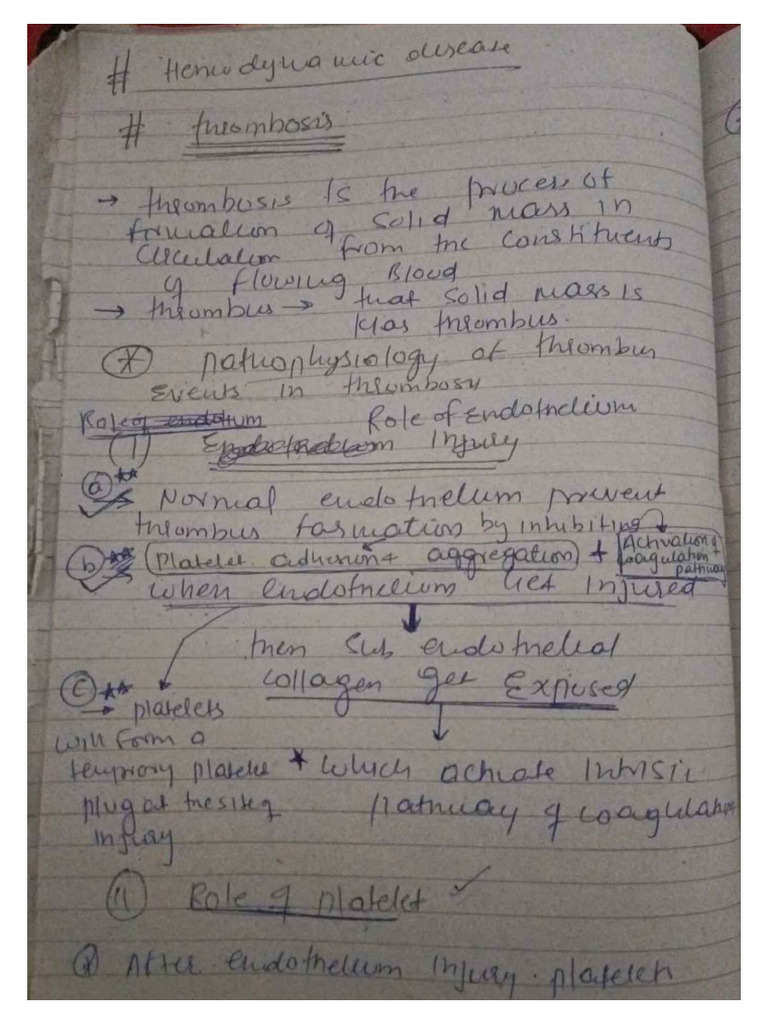 # Hemodynamic disease
# thrombosis
→ thrombosis is the process of
formation of solid mass in
circulation from the constituents
of flowing Blood
→ thrombus → that solid mass is
k/as thrombus.
* pathophysiology of thrombus
Events in thrombosis
Role of Endothelium
(1) Injury
(a) ** Normal endothelum prevent
thrombus formation by inhibiting
(b) ** (Platelet adhesion + aggregation) + Activation of
coagulation
pathway
when endothelium get Injured
then sub endothelial
collagen get Exposed
(c) ** → platelets
will form a
temprory platelet
plug at the site of
injury
* which activate Intrisic
pathway of coagulation
(11) Role of platelet ✓
* After endothelium Injury. platelets